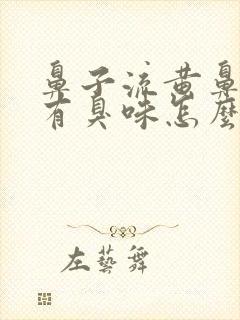 鼻子流黄鼻
有臭味怎麼
左藝舞